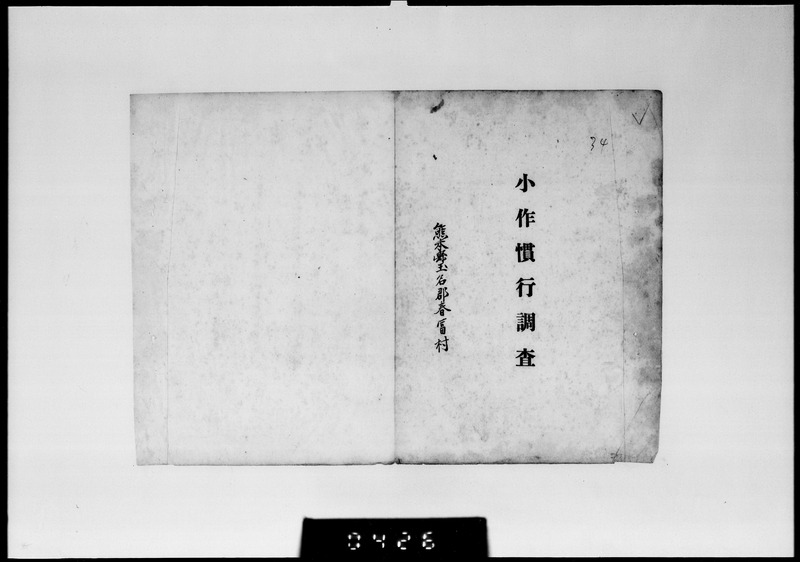 34
小作慣行調査
熊本縣玉名郡春富村
0426